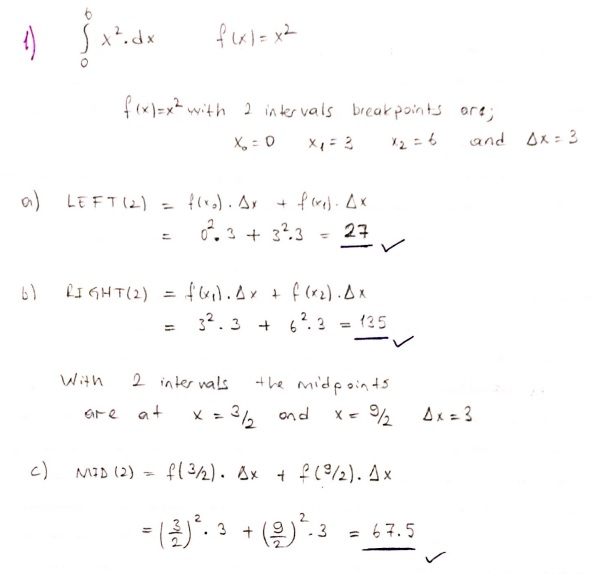 1) ∫₀⁶ x².dx f(x)=x²
f(x)=x² with 2 intervals breakpoints are;
x₀=0 x₁=3 x₂=6 and Δx=3
a) LEFT(2) = f(x₀).Δx + f(x₁).Δx
= 0².3 + 3².3 = 27 ✓
b) RIGHT(2) = f(x₁).Δx + f(x₂).Δx
= 3².3 + 6².3 = 135 ✓
With 2 intervals the midpoints
are at x = 3/2 and x = 9/2 Δx=3
c) MID(2) = f(3/2).Δx + f(9/2).Δx
= (3/2)².3 + (9/2)².3 = 67.5 ✓